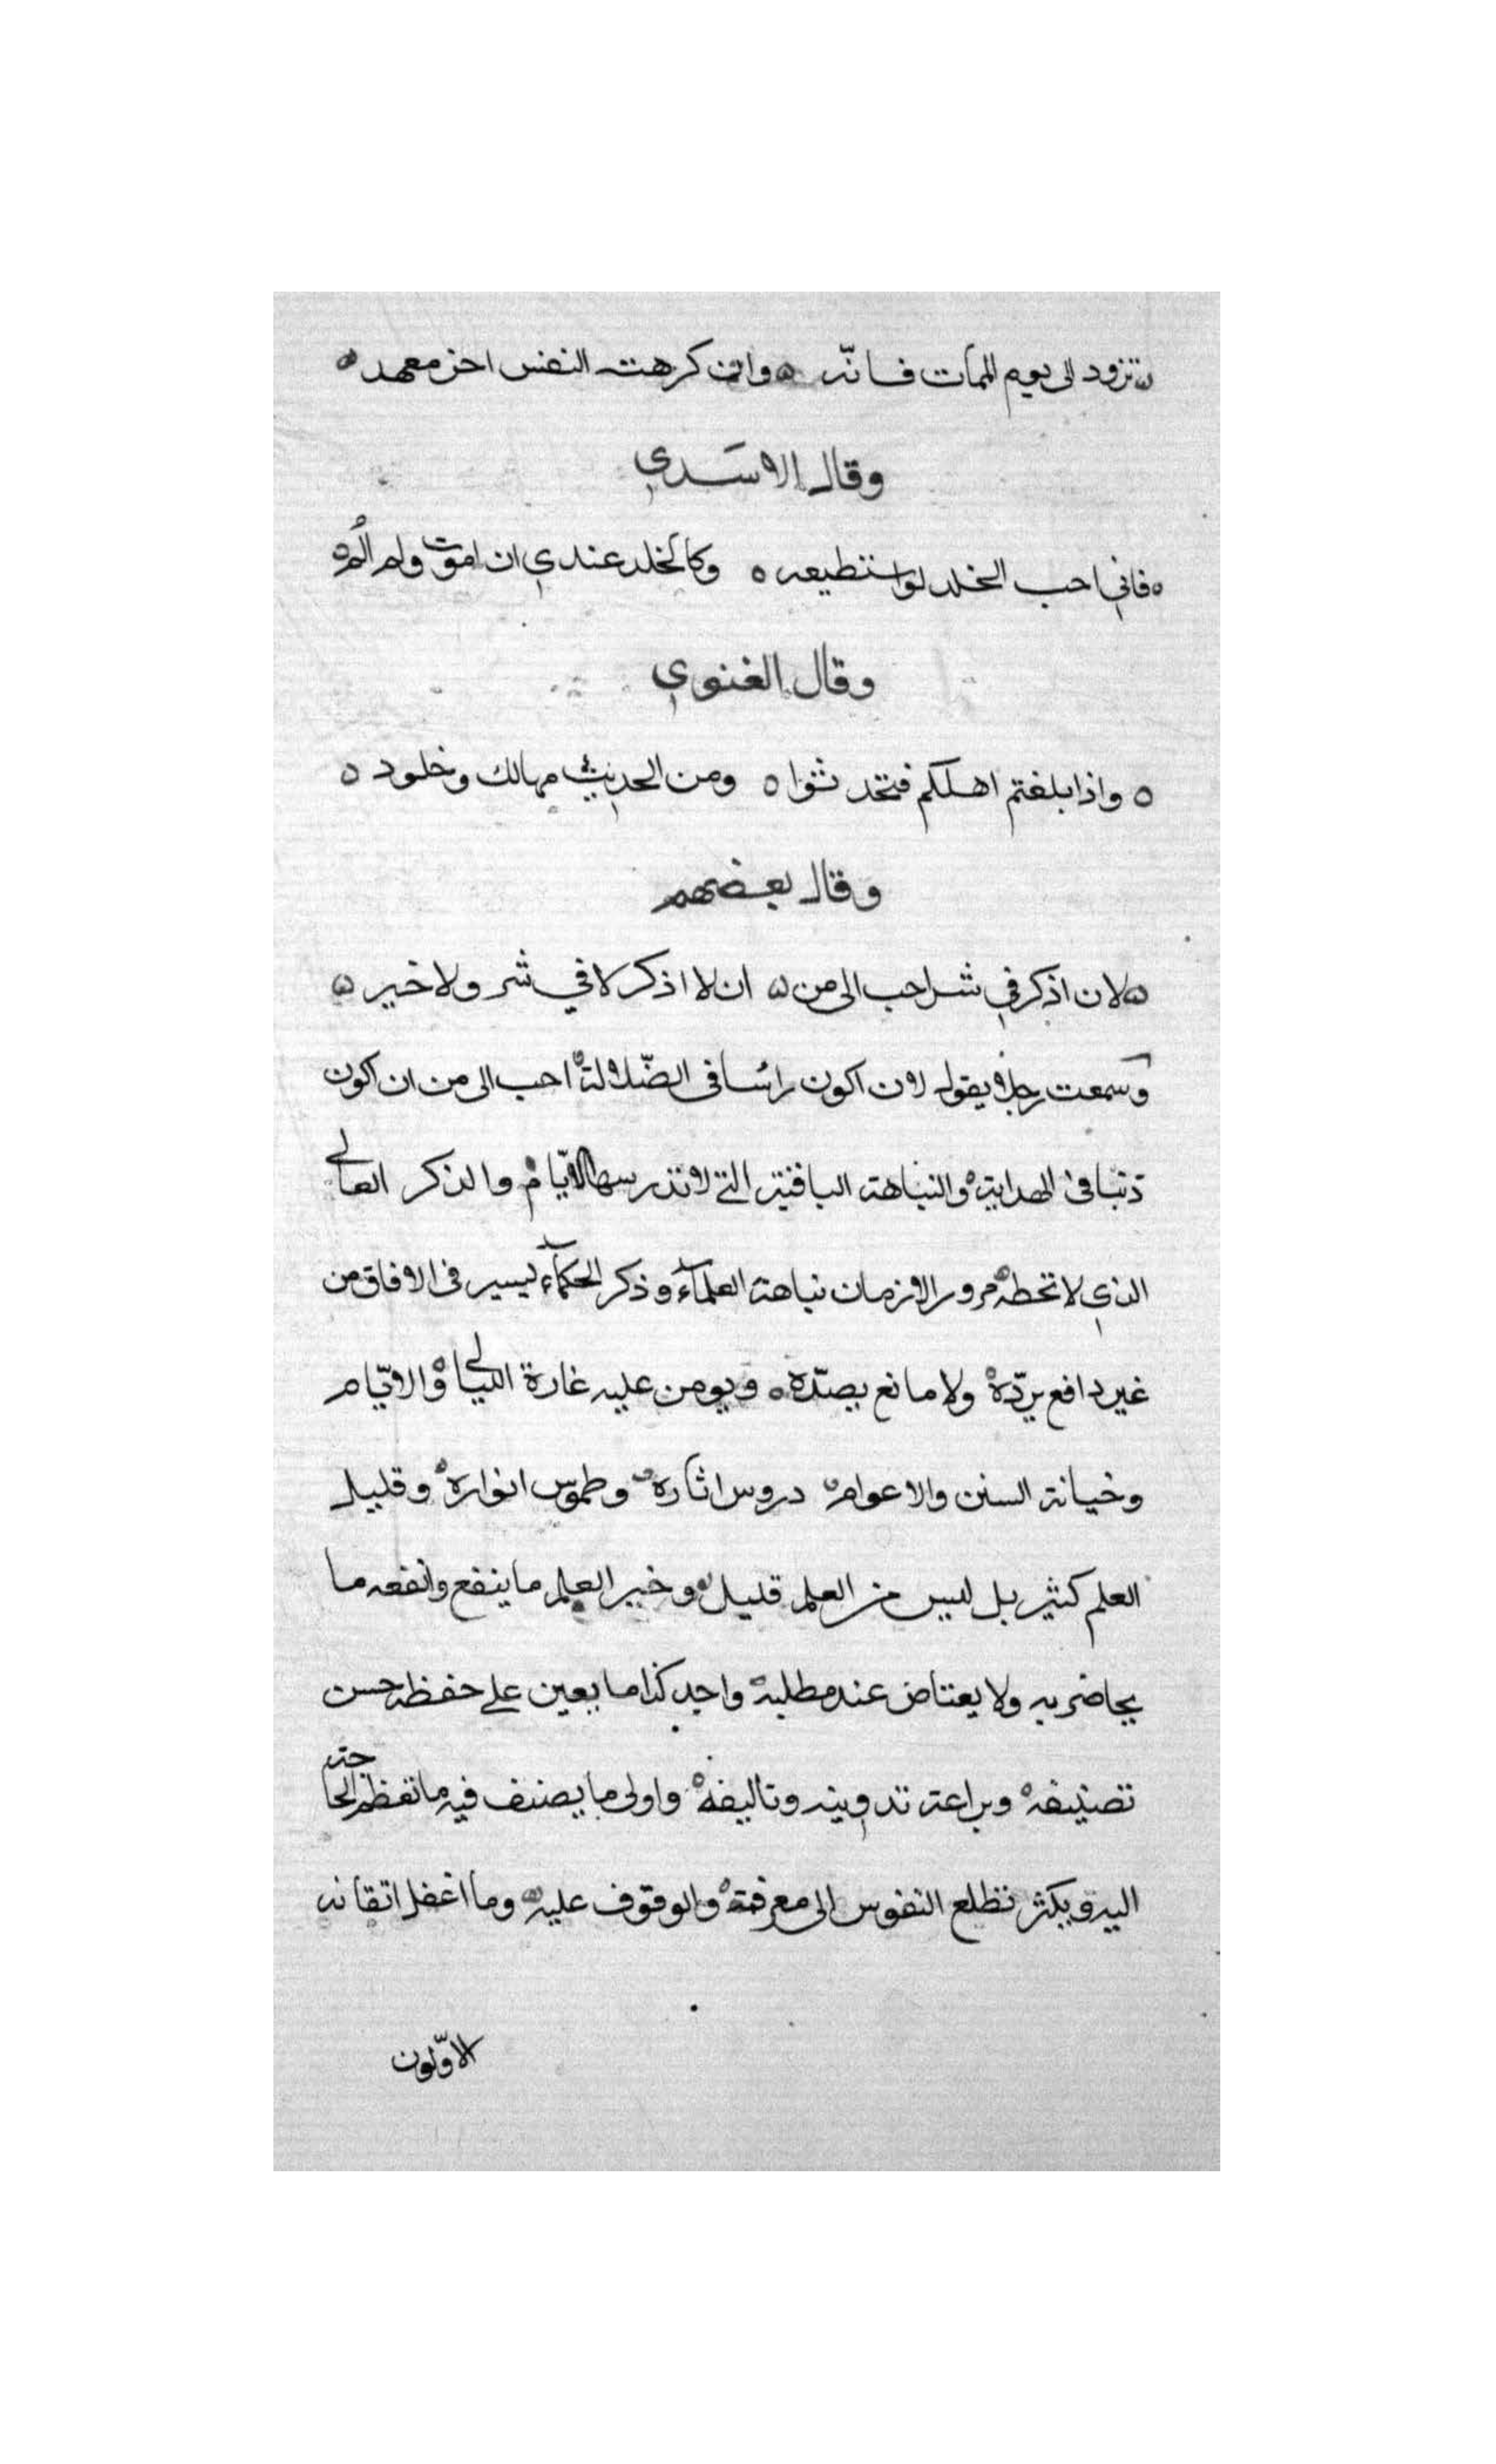 تزود الى يوم الممات فانه ه وان كرهت النفس اخر معهد ه
وقال الاسدي
ه فاني احب الخلد لو استطيعه ه وكالخلد عندي ان اموت ولم الُم ه
وقال الغنوي
ه واذا بلغتم اهلكم فتحدثوا ه ومن الحديث مهالك وخلود ه
وقال بعضهم
ه لان اذكر في شر احب الى من ه ان لا اذكر لا في شر ولا خير ه
وسمعت رجلا يقول لان اكون راسا فى الضّلالة احب الى من ان اكون
ذنبا فى الهداية والنباهة الباقية التى لا تدرسها الايّام والذكر العالى
الذي لا تحطه مرور الازمان نباهة العلمآء وذكر الحكمآء يسير فى الافاق من
غير دافع يردّه ولا مانع يصدّه ه ويومن عليه غارة الليالى والايّام
وخيانة السنن والاعوام دروس اثاره وطموس انواره وقليل
العلم كثير بل ليس من العلم قليل وخير العلم ما ينفع وانفعه ما
يحاضر به ولا يعتاض عند مطلبه واجد كذا ما يعين على حفظه حسن
تصنيفه وبراعة تدوينه وتاليفه واولى ما يصنف فيه ما تعظم الحاجة
اليه ويكثر تطلع النفوس الى معرفته والوقوف عليه وما اغفل اتقانه
الاوّلون